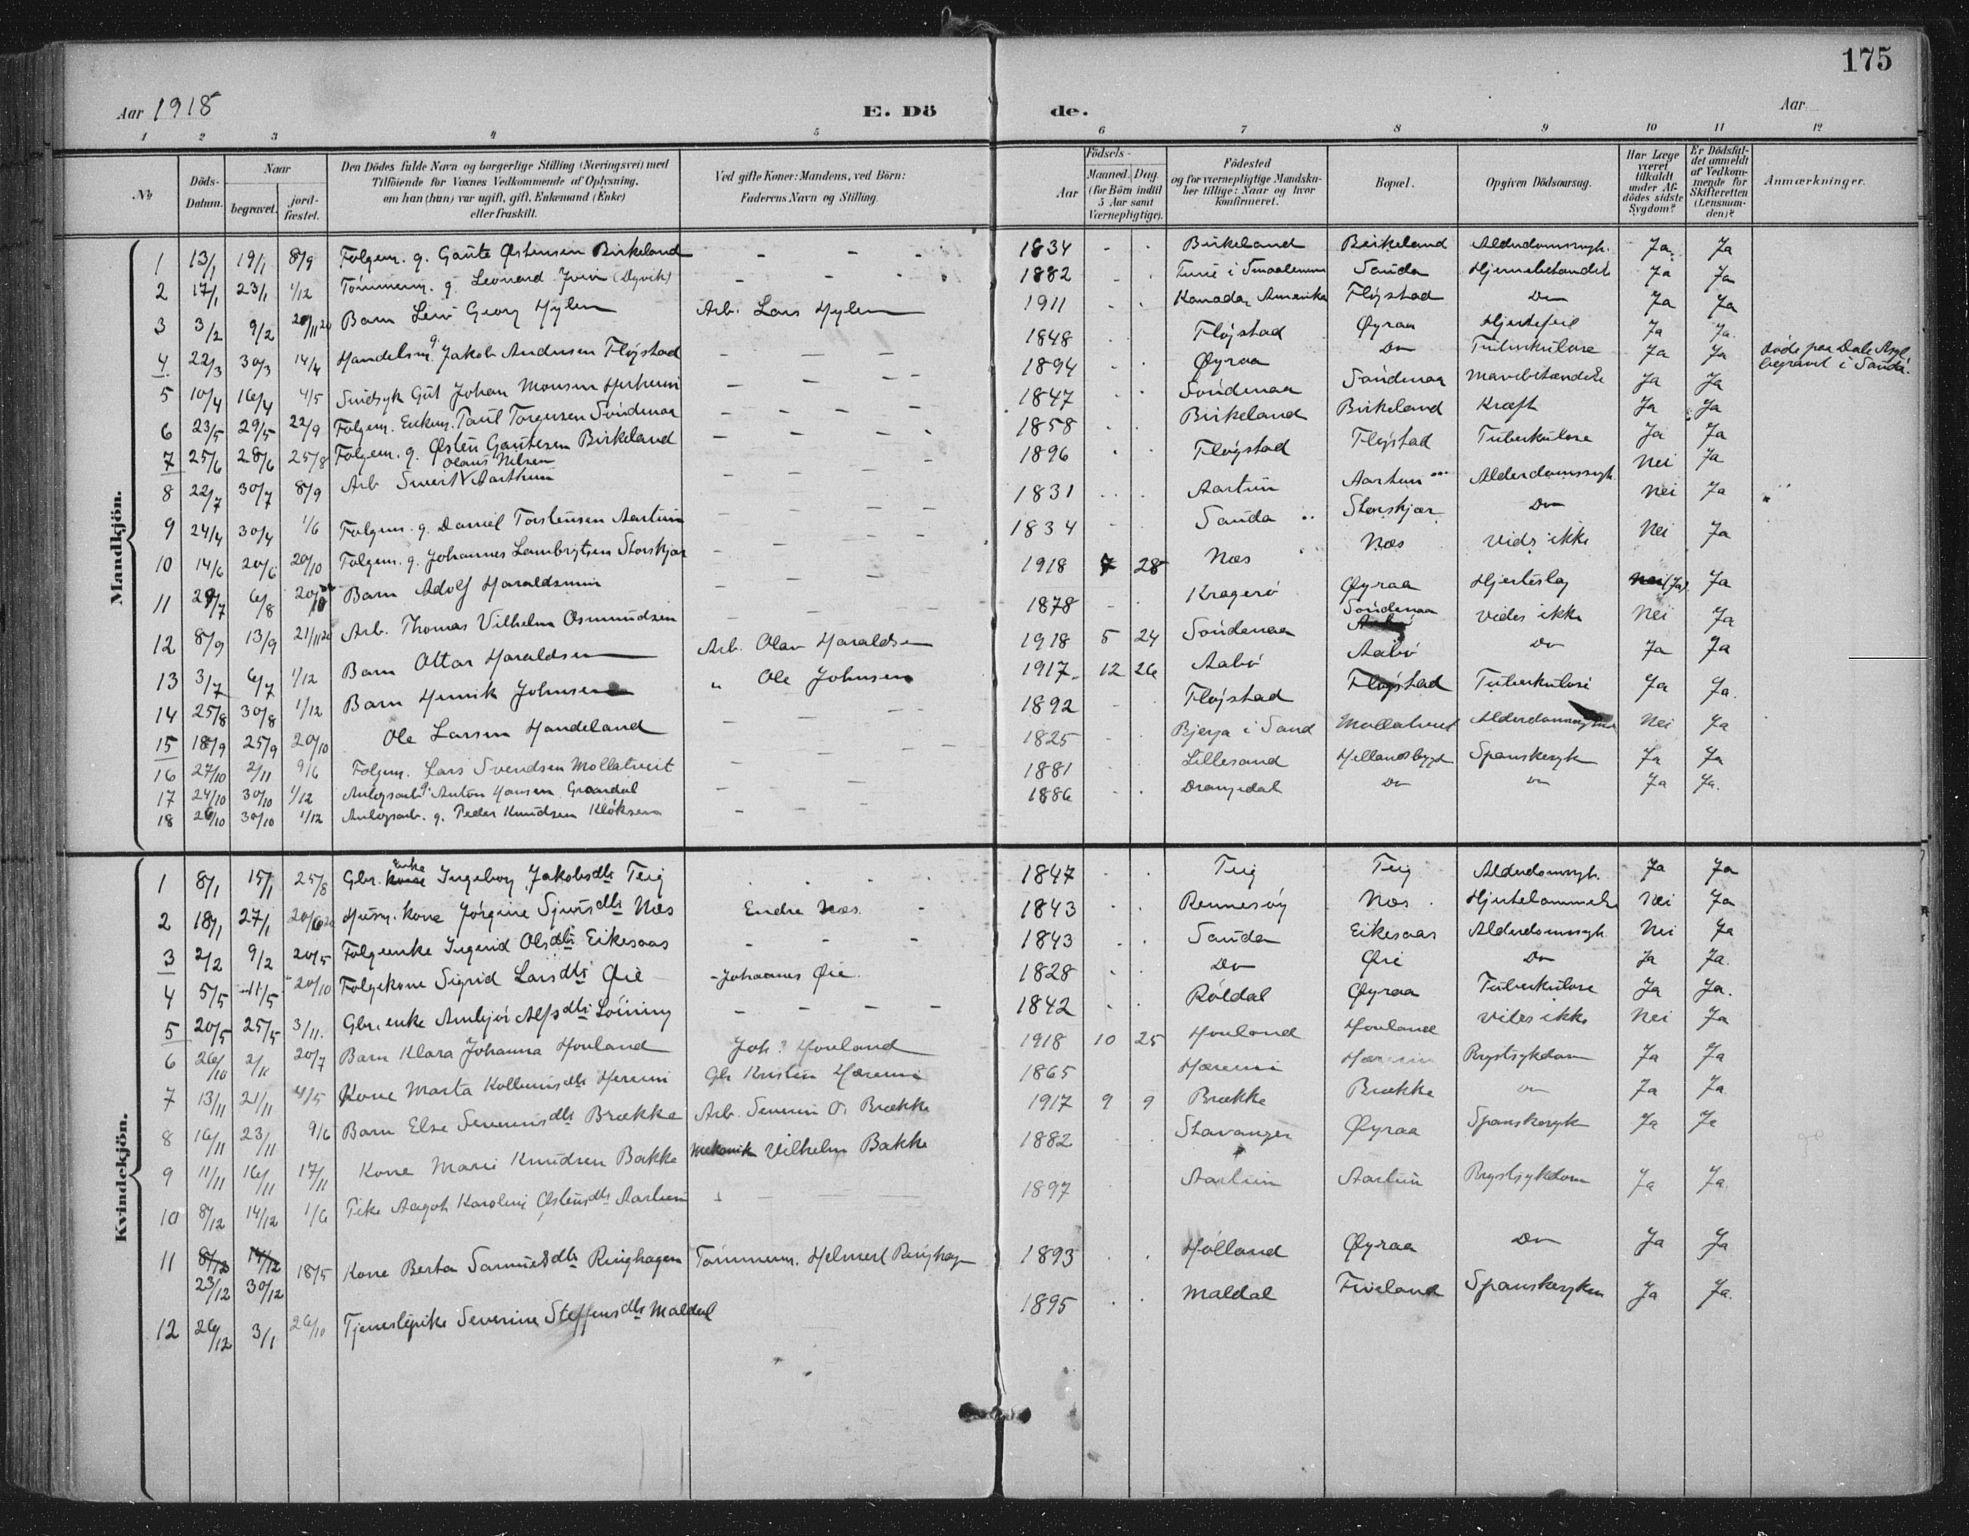 175
Aar 1918
E. Döde.
Aar
1 2 3 4 5 6 7 8 9 10 11 12
No.
Döds-Datum.
Naar
begravet.
jord-fæstet.
Den Dödes fulde Navn og borgerlige Stilling (Næringsvei) med
Tilföiende for Voxnes Vedkommende af Oplysning,
om han (hun) var ugift, gift, Enkemand (Enke)
eller fraskilt.
Ved gifte Koner: Mandens, ved Börn:
Faderens Navn og Stilling.
Födsels-
Aar
Maaned. Dag.
(for Börn indtil
5 Aar samt
Værnepligtige).
Födested
og for værnepligtige Mandska-
ber tillige: Naar og hvor
konfirmeret.
Bopæl.
Opgiven Dödsaarsag.
Har Læge
været
tilkaldt
under Af-
dödes sidste
Sygdom?
Er Dödsfal-
det anmeldt
af Vedkom-
mende for
Skifteretten
(Lensman-
den)?
Anmærkninger.
Mandkjön.
1 13/1 19/1 8/9 Folgem. g. Gaute Østensen Birkeland - - - 1834 - - Birkeland Birkeland Alderdomssygh. Ja Ja
2 17/1 23/1 1/12 Tömmerm. g. Leonard (Dyvik) - - - 1882 - - Tune i Smaalenene Sauda Hjernebetændelse Ja Ja
3 3/2 9/2 Barn Georg Hylen Arb. Lars Hylen 1911 - - Kanada, Amerika Fløgstad Do Ja Ja
4 22/3 30/3 14/4 Handelsm. g. Jakob Andersen Fløgstad - - - 1848 Fløgstad Øyraa Hjertefeil Ja Ja
5 10/4 16/4 4/5 Sindsyk Gut Johan Monsen Herheim - - - 1894 Øyraa Do Tuberkulose Ja Ja døde paa Dale Asyl, begravet i Sauda.
6 23/5 29/5 22/9 Folgem. Enkem. Paul Torgersen Söndenaa - - - 1847 Söndenaa Söndenaa Mavebetændelse Ja Ja
7 25/6 28/6 25/8 Folgem. g. Østen Gautesen Birkeland - - - 1858 Birkeland Birkeland Kræft Ja Ja
8 22/7 30/7 8/9 Arb. Sivert Olaus Nilsen Aarthun - - - 1896 Fløgstad Fløgstad Tuberkulose Ja Ja
9 24/4 30/4 1/6 Folgem. g. Daniel Torstensen Aartun - - - 1831 Aartun Aartun Alderdomssygh. Nei Ja
10 14/6 20/6 20/10 Folgem. g. Johannes Lambrigtsen Storskjær - - - 1834 Sauda Storskjær Do Nei Ja
11 6/8 Barn Adolf Haraldsen - - - 1918 7 28 Næs Næs vides ikke Nei Ja
12 8/9 13/9 21/11 Arb. Thomas Vilhelm Osmundsen - - - 1878 Kragerö Øyraa Hjerteslag Nei (Ja) Ja
13 3/7 6/7 1/12 Barn Ottar Haraldsen Arb. Olav Haraldsen 1918 5 24 Söndenaa Söndenaa vides ikke Nei Ja
14 25/8 30/8 1/12 Barn Henrik Johnsen " Ole Johnsen 1917 12 26 Aabö Aabö Do Ja Ja
15 18/9 25/9 20/10 Ole Larsen Handeland - - - 1892 Fløgstad Fløgstad Tuberkulose Ja Ja
16 27/10 2/11 9/6 Folgem. Lars Svendsen Mollatveit - - - 1825 i Sand Mollatveit Nei Ja
17 24/10 30/10 1/12 Anlegsarb. g. Anton Hansen Graadal - - - 1881 Lillesand Hellandsbygd Spanskesyk Ja Ja
18 26/10 30/10 1/12 Anlegsarb. g. Peder Knudsen - - - 1886 Drangedal Do Do Ja Ja
Kvindekjön.
1 8/1 15/1 25/8 Gbr. Enke Ingeborg Jakobsdtr Teig - - - 1847 Teig Teig Alderdomssygh. Ja Ja
2 18/1 27/1 Husm. kone Jörgine Næs Endre Næs 1843 Rennesøy Næs Hjertelammelse Nei Ja
3 2/2 9/2 20/5 Folgeenke Ingerid Olsdtr Eikesaas - - - 1843 Sauda Eikesaas Alderdomssygh. Nei Ja
4 5/5 11/5 20/10 Folgekone Sigrid Larsdtr Øie Johannes Øie 1828 Do Øie Do Ja Ja
5 20/5 25/5 3/11 Gbr. enke Anbjör Alfsdtr Löining - - - 1842 Röldal Øyraa Tuberkulose Ja Ja
6 26/10 20/7 Barn Klara Johanna Hovland Joh. Hovland 1918 10 25 Hovland Hovland vites ikke Nei Ja
7 13/11 21/11 4/5 Kone Marta Herheim Gbr. Kristen 1865 Brystsykdom Ja Ja
8 16/11 23/11 9/6 Barn Else Severinsdtr Brække Arb. Severin O. Brække 1917 9 9 Brække Brække Do Ja Ja
9 11/11 16/11 17/11 Kone Marie Knudsen Bakke Mekanik Vilhelm Bakke 1882 Stavanger Øyraa Spanskesyk Ja Ja
10 8/12 14/12 1/6 Pike Aagot Karoline Østensdtr Aartun - - - 1897 Aartun Aartun Brystsykdom Ja Ja
11 8/12 14/12 23/12 30/12 18/5 Kone Berta Samuelsdtr Ringhagen Tömmerm. Helmert Ringhagen 1893 Hölland Øyraa Do Ja Ja
12 26/12 3/1 26/10 Tjenestepike Severine Steffensdtr Maldal 1895 Maldal Fiveland Spanskesyken Ja Ja